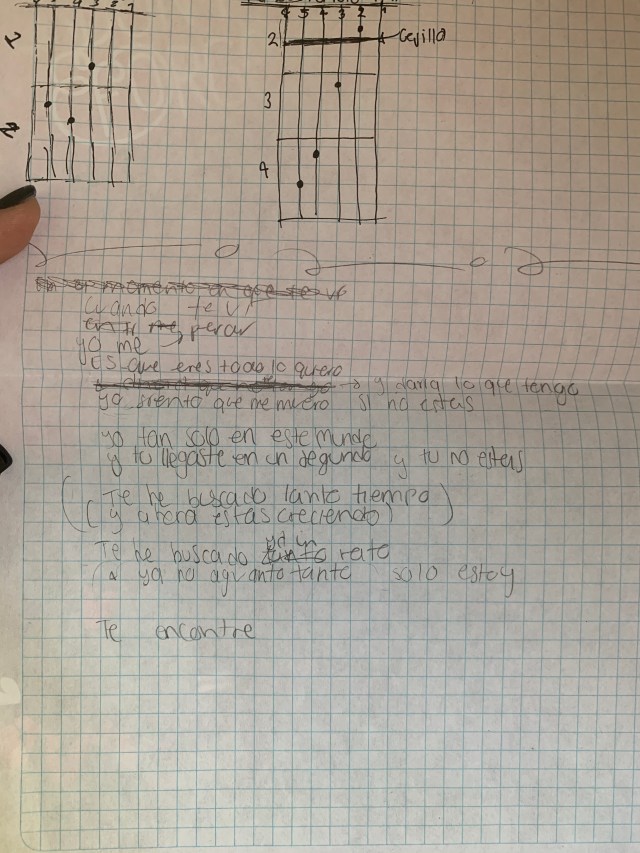 6 5 4 3 2 1
2
Cejilla
3
4
2
2
En el momento en que te vi
Cuando te vi
yo me
perar
es que eres todo lo quiero
y daria lo que tengo
yo siento que me muero si no estas
yo tan solo en este mundo
y tu llegaste en un segundo y tu no estas
(Te he buscado tanto tiempo)
(y ahora estas creciendo)
Te he buscado ya un tanto rato
ya no aguanto tanto solo estoy
Te encontre